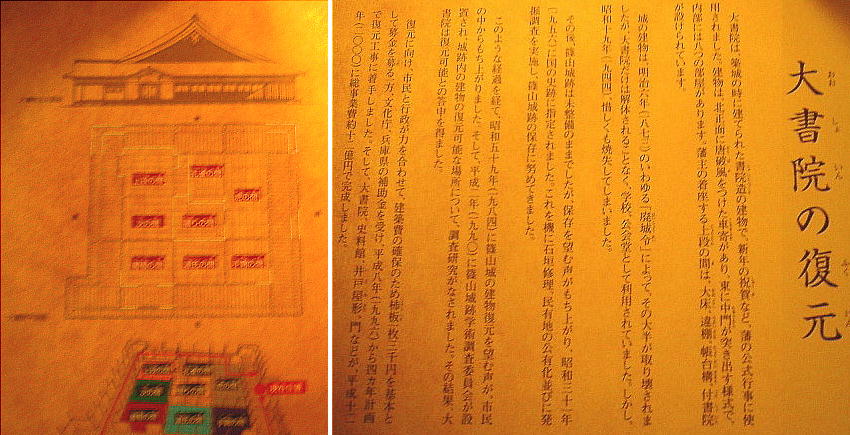 大書院の復元
おお しょ いん ふく げん
大書院は、築城の時に建てられた書院造の建物で、新年の祝賀など、藩の公式行事に使
用されました。建物は、北正面に唐破風をつけた車寄があり、東に中門が突き出す様式で、
内部には八つの部屋があります。藩主の着座する上段の間は、大床、違棚、帳台構、付書院
が設けられています。
城の建物は、明治六年(一八七三)のいわゆる「廃城令」によって、その大半が取り壊されま
したが、大書院だけは解体されることなく、学校、公会堂として利用されていました。しかし、
昭和十九年(一九四四)、惜しくも焼失してしまいました。
その後、篠山城跡は未整備のままでしたが、保存を望む声がもち上がり、昭和三十一年
(一九五六)に国の史跡に指定されました。これを機に石垣修理、民有地の公有化並びに発
掘調査を実施し、篠山城跡の保存に努めてきました。
このような経過を経て、昭和五十九年(一九八四)に篠山城の建物復元を望む声が、市民
の中からもち上がりました。そして、平成二年(一九九〇)に篠山城跡学術調査委員会が設
置され、城跡内の建物の復元可能な場所について、調査研究がなされました。その結果、大
書院は復元可能との答申を得ました。
復元に向け、市民と行政が力を合わせて、建築費の確保のため柿板一枚二千円を基本と
して募金を募る一方、文化庁、兵庫県の補助金を受け、平成八年(一九九六)から四カ年計画
で復元工事に着手しました。そして、大書院、史料館、井戸屋形、門などが、平成十二
年(二〇〇〇)に総事業費約十二億円で完成しました。